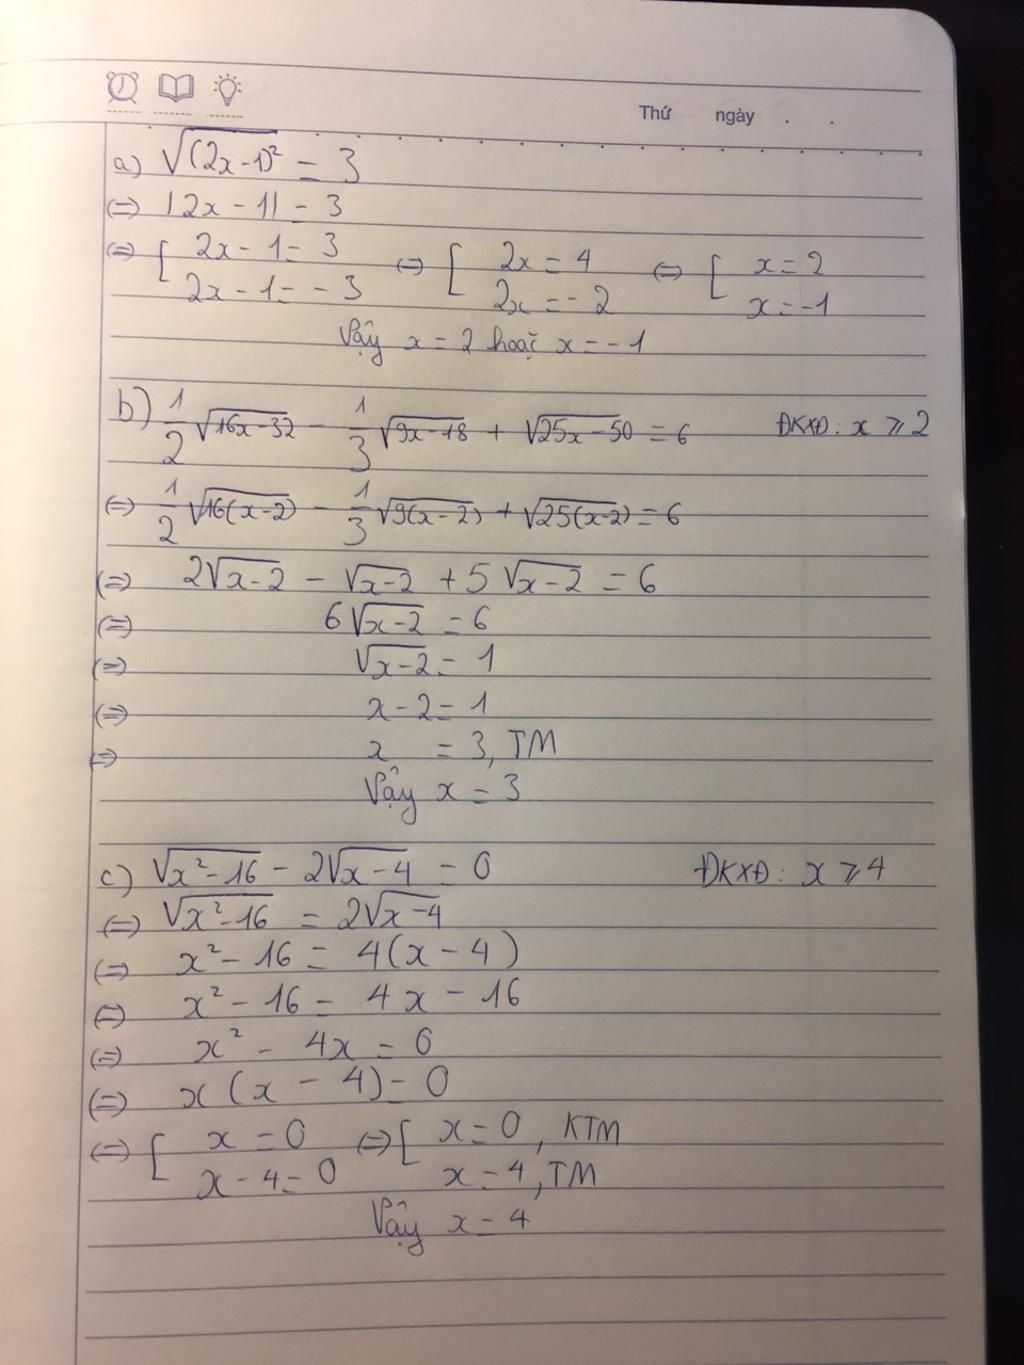 Thứ ngày
a) √(2x-1)² = 3
⇔ |2x - 1| = 3
⇔ [ 2x - 1 = 3 ⇔ [ 2x = 4 ⇔ [ x = 2
2x - 1 = - 3 2x = - 2 x = -1
Vậy x = 2 hoặc x = - 1
b) 1/2 √16x-32 - 1/3 √9x-18 + √25x-50 = 6 ĐKXĐ: x ⩾ 2
⇔ 1/2 √16(x-2) - 1/3 √9(x-2) + √25(x-2) = 6
⇔ 2√x-2 - √x-2 + 5√x-2 = 6
⇔ 6√x-2 = 6
⇔ √x-2 = 1
⇔ x-2 = 1
⇔ x = 3, TM
Vậy x = 3
c) √x²-16 - 2√x-4 = 0 ĐKXĐ: x ⩾ 4
⇔ √x²-16 = 2√x-4
⇔ x² - 16 = 4(x - 4)
⇔ x² - 16 = 4x - 16
⇔ x² - 4x = 0
⇔ x(x - 4) = 0
⇔ [ x = 0 ⇔ [ x = 0, KTM
x - 4 = 0 x = 4, TM
Vậy x = 4